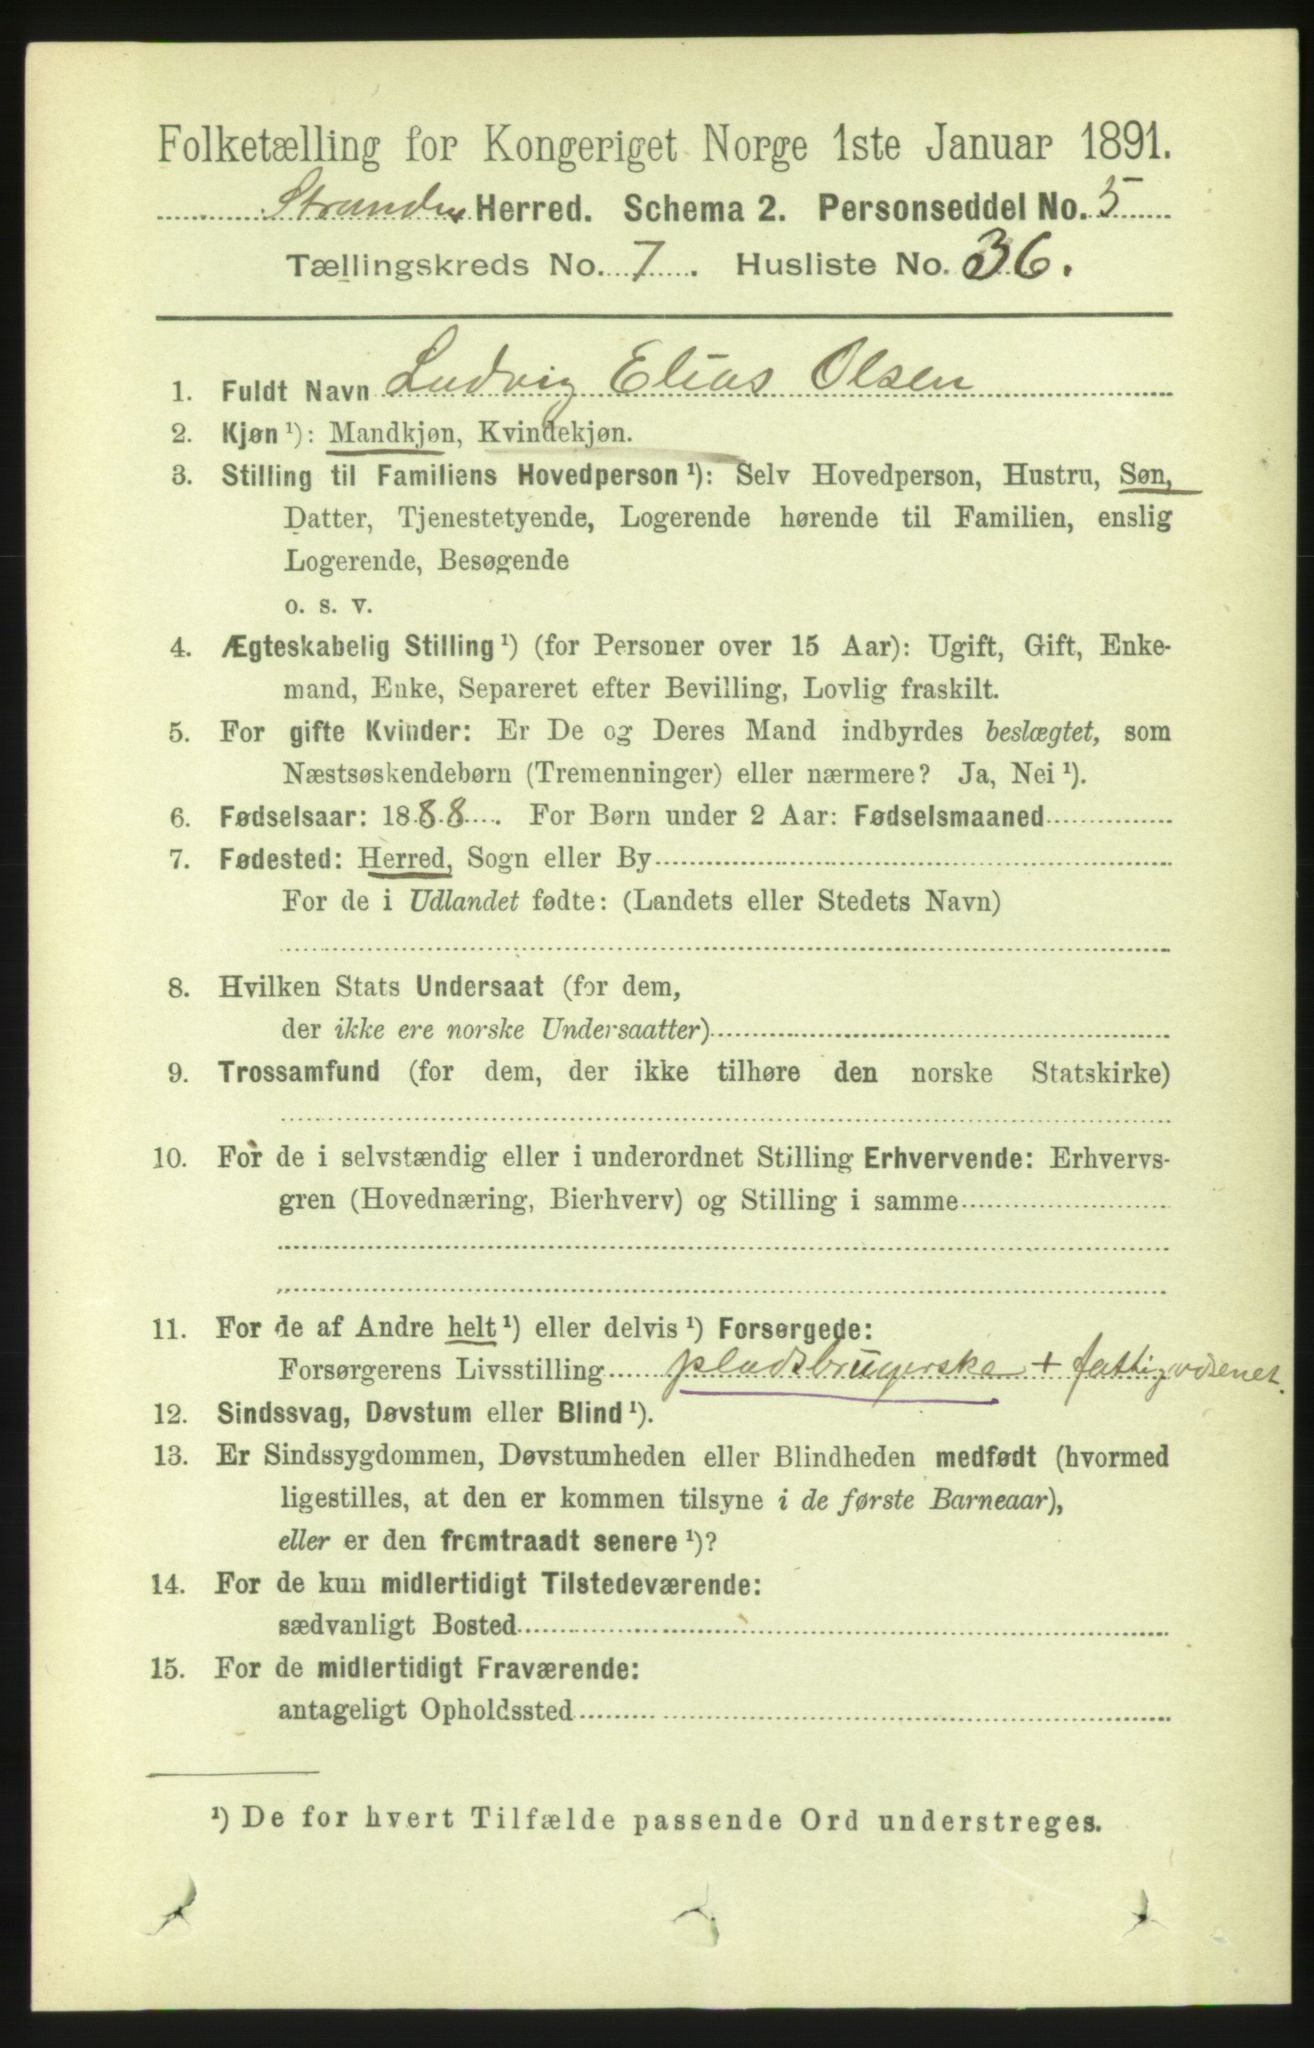 Folketælling for Kongeriget Norge 1ste Januar 1891.
Stranden Herred. Schema 2. Personseddel No. 5
Tællingskreds No. 7. Husliste No. 36.
1. Fuldt Navn Ludvig Elias Olsen
2. Kjøn ¹): Mandkjøn, Kvindekjøn.
3. Stilling til Familiens Hovedperson ¹): Selv Hovedperson, Hustru, Søn,
Datter, Tjenestetyende, Logerende hørende til Familien, enslig
Logerende, Besøgende
o. s. v.
4. Ægteskabelig Stilling ¹) (for Personer over 15 Aar): Ugift, Gift, Enke-
mand, Enke, Separeret efter Bevilling, Lovlig fraskilt.
5. For gifte Kvinder: Er De og Deres Mand indbyrdes beslægtet, som
Næstsøskendebørn (Tremenninger) eller nærmere? Ja, Nei ¹).
6. Fødselsaar: 1888. For Børn under 2 Aar: Fødselsmaaned
7. Fødested: Herred, Sogn eller By
For de i Udlandet fødte: (Landets eller Stedets Navn)
8. Hvilken Stats Undersaat (for dem,
der ikke ere norske Undersaatter)
9. Trossamfund (for dem, der ikke tilhøre den norske Statskirke)
10. For de i selvstændig eller i underordnet Stilling Erhvervende: Erhvervs-
gren (Hovednæring, Bierhverv) og Stilling i samme
11. For de af Andre helt ¹) eller delvis ¹) Forsørgede:
Forsørgerens Livsstilling pladsbrugerske + fattigvæsenet.
12. Sindssvag, Døvstum eller Blind ¹).
13. Er Sindssygdommen, Døvstumheden eller Blindheden medfødt (hvormed
ligestilles, at den er kommen tilsyne i de første Barneaar),
eller er den fremtraadt senere ¹)?
14. For de kun midlertidigt Tilstedeværende:
sædvanligt Bosted
15. For de midlertidigt Fraværende:
antageligt Opholdssted
¹) De for hvert Tilfælde passende Ord understreges.